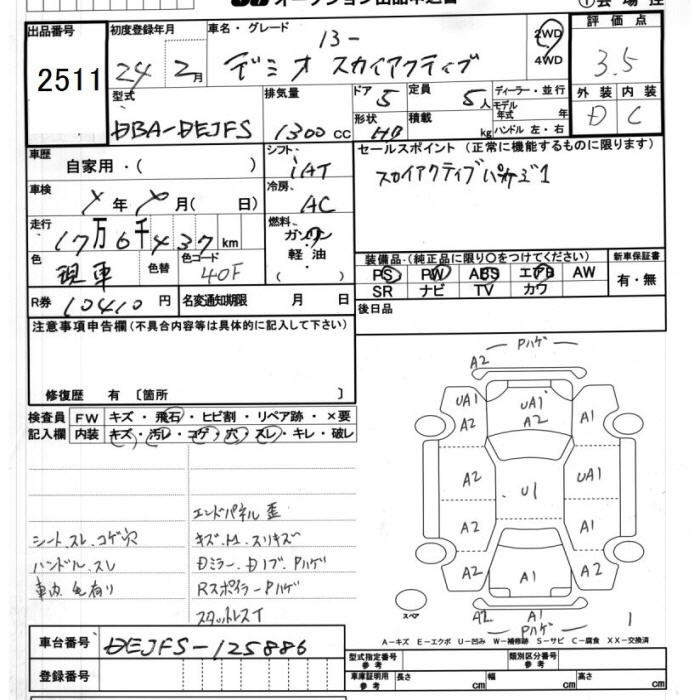 出品番号 初度登録年月 車名・グレード 評価点
2511
24年 2月 13- デミオ スカイアクティブ 2WD 4WD 3.5
型式 排気量 ドア 5 定員 5人 ディーラー・並行 外装 内装
モデル年式 年
DBA-DEJFS 1300cc 形状 HB 積載 kg ハンドル 左・右 D C
車歴 自家用・( ) シフト iAT セールスポイント (正常に機能するものに限ります)
スカイアクティブパッケージ1
車検 年 月( 日) 冷房 AC
走行 17万6千437km 燃料 ガソリン 軽・油 ( )
装備品(純正品に限り○をつけてください) 新車保証書
色 現車 色替 色コード 40F PS PW ABS エアB AW 有・無
SR ナビ TV カワ
R券 10410円 名変通知期限 月 日 後日品
注意事項申告欄(不具合内容等は具体的に記入して下さい)
修復歴 有 [箇所 ]
検査員記入欄 FW キズ・飛石・ヒビ割・リペア跡・×要
内装 キズ・汚レ・コゲ・穴・スレ・キレ・破レ
エンドパネル 歪
シート.スレ.コゲ穴 キズ.ナミ.スリキズ
ハンドル.スレ Dミラー.Dノブ.Pハゲ
車内.毛有り Rスポイラー.Pハゲ
スタットレスT
Pハゲ
A2
UA1 UA1 A1
A2 A2
A2 U1 UA1
A2 A1
A2 A1 A2
スペア A2 A1 1
Pハゲ
A-キズ E-エクボ U-凹み W-補修跡 S-サビ C-腐食 XX-交換済
車台番号 DEJFS-125886
型式指定番号 参考 類別区分番号 参考
登録番号 車庫証明用 参考 長さ cm 幅 cm 高さ cm